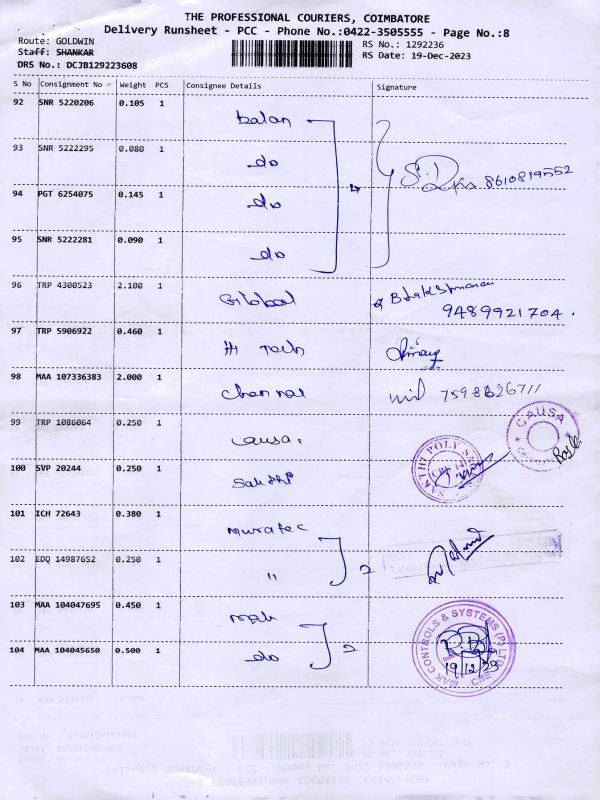 THE PROFESSIONAL COURIERS, COIMBATORE
Delivery Runsheet - PCC - Phone No.:0422-3505555 - Page No.:8
Route: GOLDWIN
RS No.: 1292236
Staff: SHANKAR
RS Date: 19-Dec-2023
DRS No.: DCJB129223608
S No Consignment No Weight PCS Consignee Details Signature
92 SNR 5220206 0.105 1 balan
93 SNR 5222295 0.080 1 do
4 8610819552
94 PGT 6254075 0.145 1 do
95 SNR 5222281 0.090 1 do
96 TRP 4300523 2.100 1 Global
9489921704.
97 TRP 5906922 0.460 1 Hi Tech
98 MAA 107336383 2.000 1 Chennai
99 TRP 1086064 0.250 1 Causa.
CAUSA
100 SVP 20244 0.250 1 Sakthi
SAKTHI POLY
101 ICH 72643 0.380 1 Muratec
102 EDQ 14987652 0.250 1 " 2
103 MAA 104047695 0.450 1 mak
104 MAA 104045650 0.500 1 do 2
MAK CONTROLS & SYSTEMS (P) LTD. CBE
19/12/23